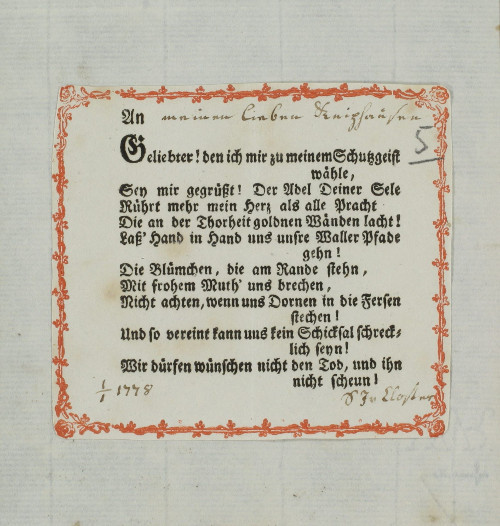 An meinen lieben Reizhausen
5
Geliebter! den ich mir zu meinem Schutzgeist
wähle,
Sey mir gegrüßt! Der Adel Deiner Sele
Rührt mehr mein Herz als alle Pracht
Die an der Thorheit goldnen Wänden lacht!
Laß' Hand in Hand uns unsre Waller Pfade
gehn!
Die Blümchen, die am Rande stehn,
Mit frohem Muth' uns brechen,
Nicht achten, wenn uns Dornen in die Fersen
stechen!
Und so vereint kann uns kein Schicksal schreck-
lich seyn!
Wir dürfen wünschen nicht den Tod, und ihn
nicht scheun!
1/1 1778
Kloster